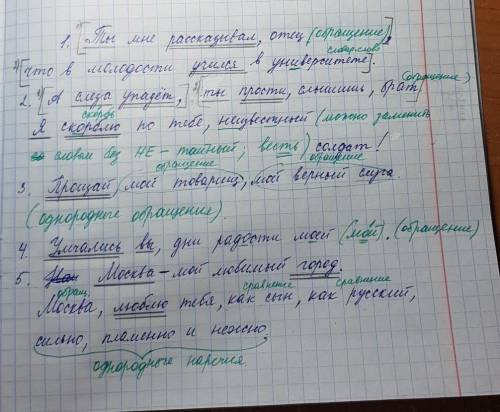 1. [Ты мне рассказывал, отец (обращение),
словар. слово
2[что в молодости учился в университете].
(обращение)
2. 1[А слеза упадёт,] 2[ты прости, слышишь, брат]
скорбь
Я скорблю по тебе, неизвестный (можно заменить
словом без НЕ - тайный; весть) солдат!
обращение обращение
3. Прощай, мой товарищ, мой верный слуга.
(однородные обращение).
4. Умчались вы, дни радости моей (мой). (обращение)
5. Москва - мой любимый город.
обращ. сравнение сравнение
Москва, люблю тебя, как сын, как русский,
сильно, пламенно и нежно,
однородные наречия